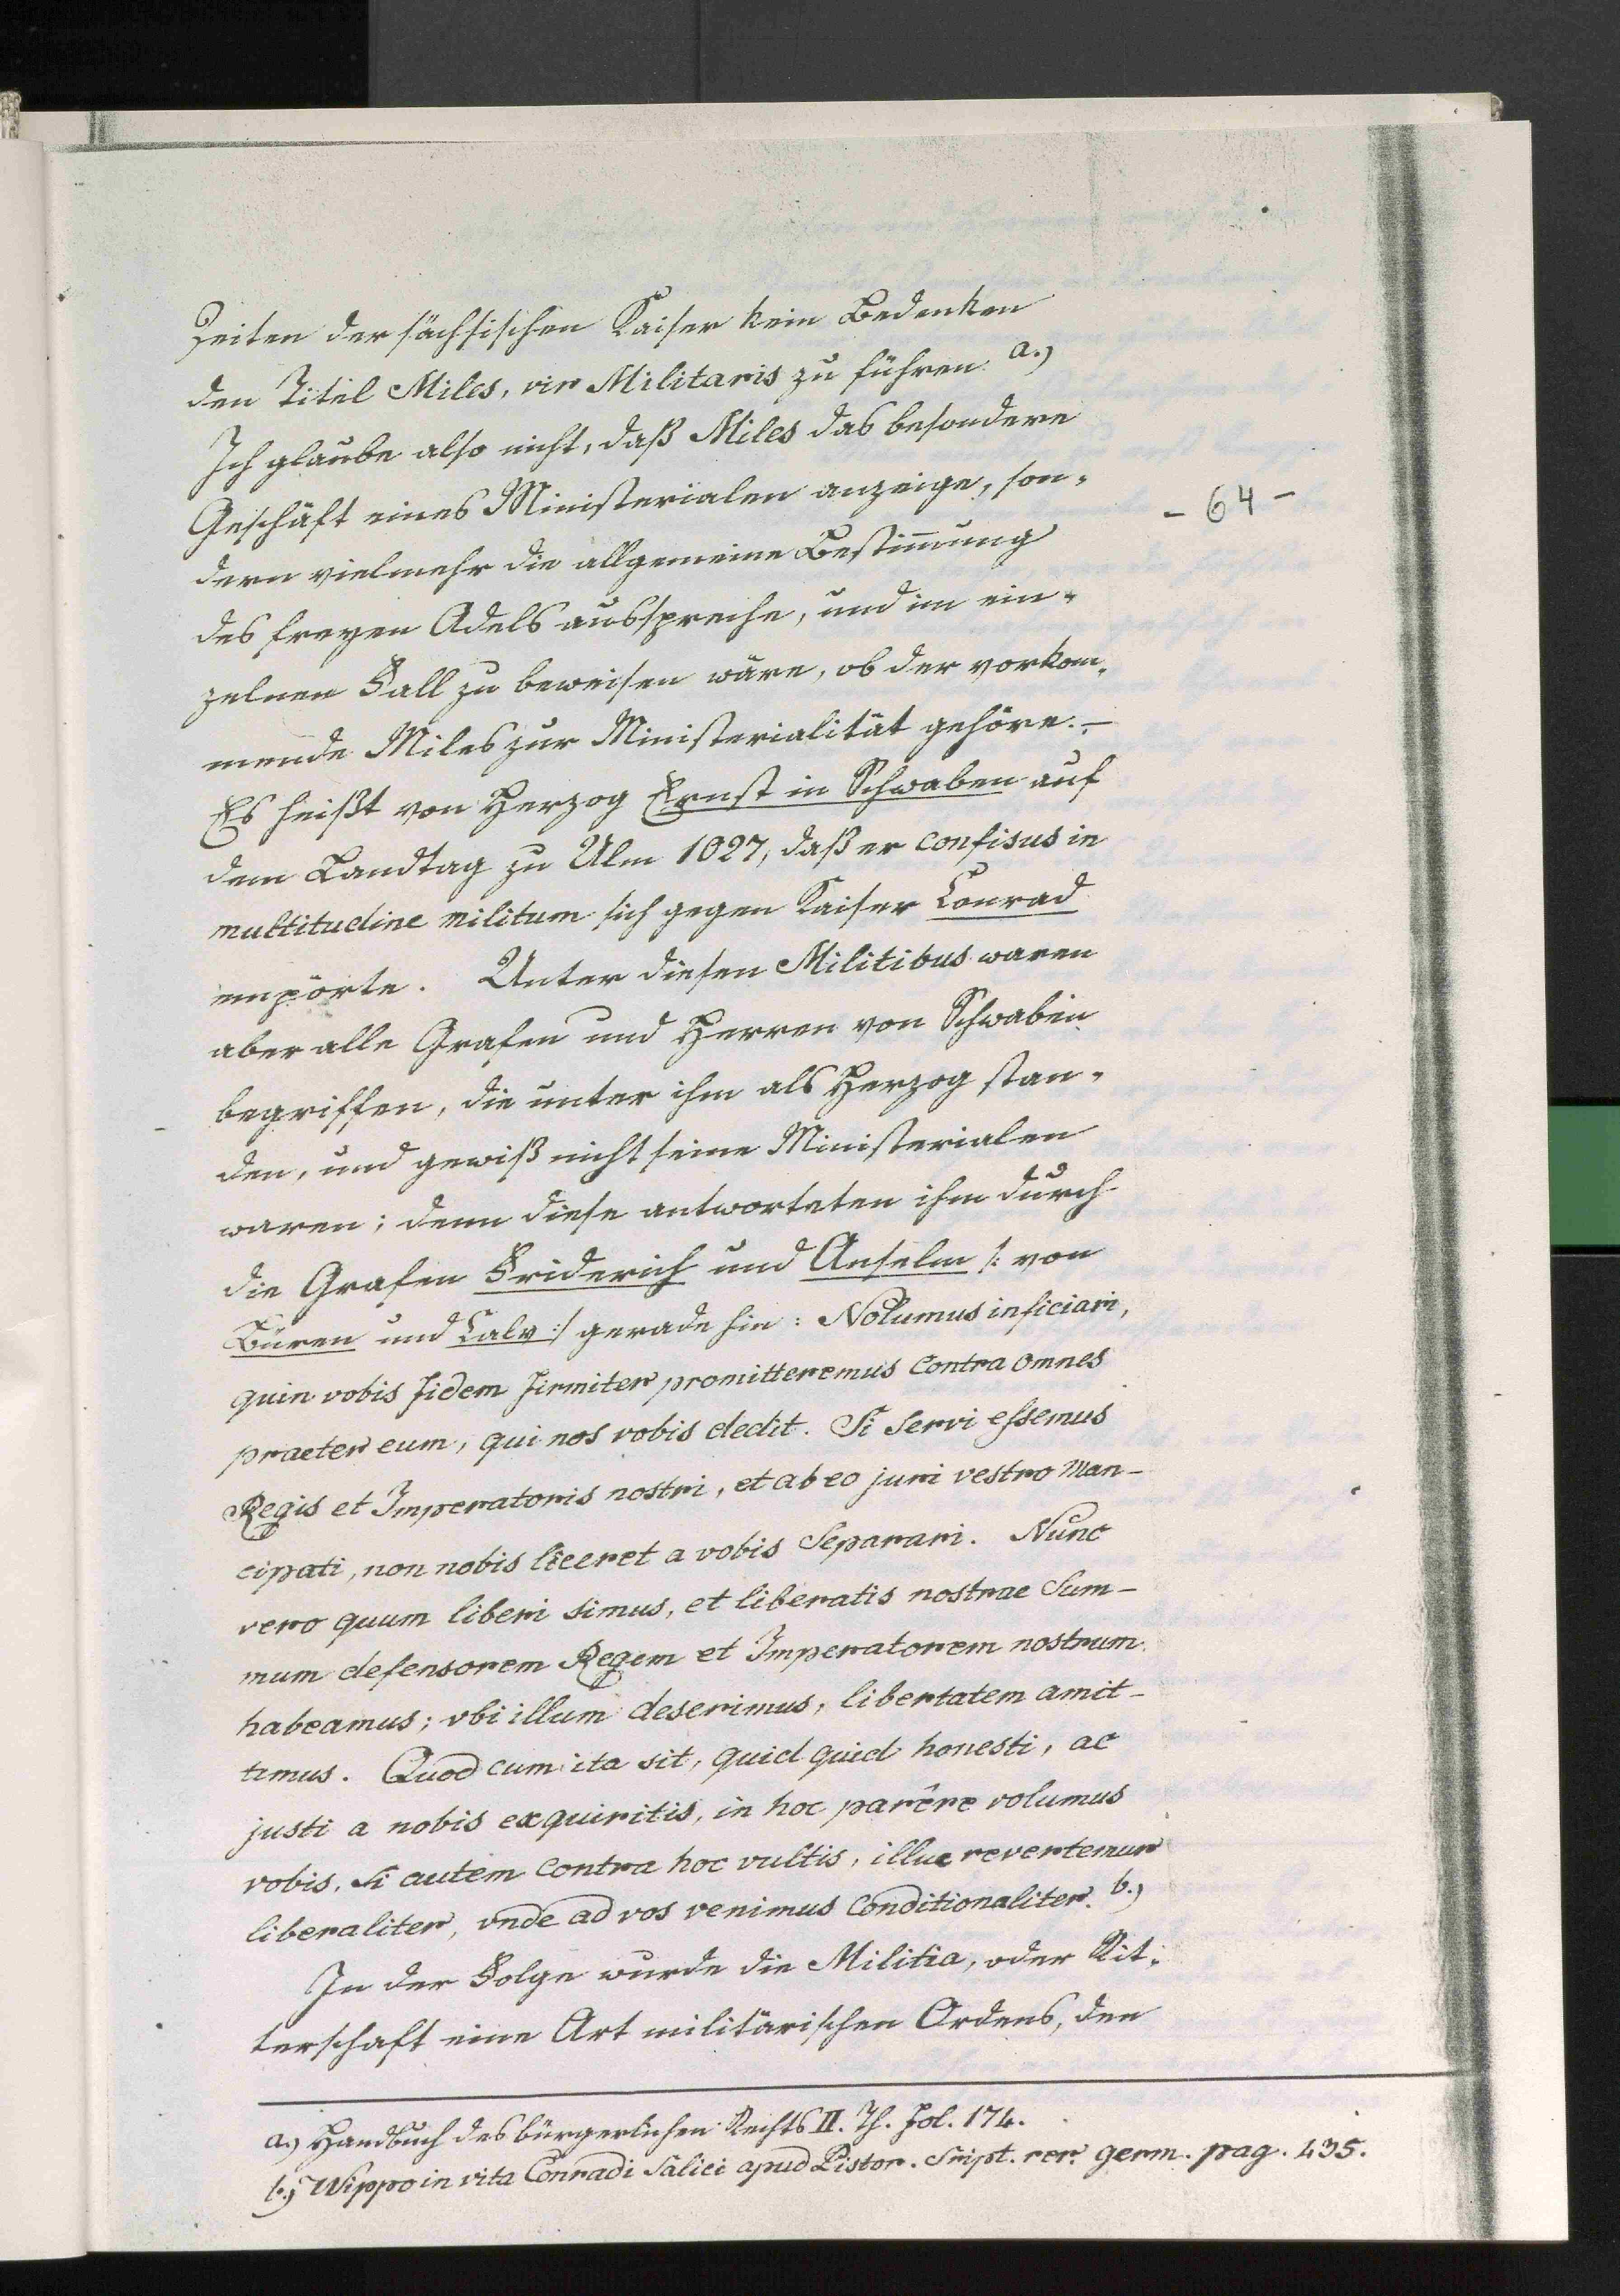 Zeiten der sächsischen Kaiser kein Bedenken
den Titel Miles, vir Militaris zu führen. a.)
Ich glaube also nicht, daß Miles das besondere
Geschäft eines Ministerialen anzeige, son-
- 64 -
dern vielmehr die allgemeine Bestim̄ung
des freyen Adels ausspreche, und im ein-
zelnen Fall zu beweisen wäre, ob der vorkom-
mende Miles zur Ministerialität gehöre. –
Es heißt von Herzog Ernst in Schwaben auf
dem Landtag zu Ulm 1027, daß er confisus in
multitudine militum sich gegen Kaiser Conrad
empörte. Unter diesen Militibus waren
aber alle Grafen und Herren von Schwaben
begriffen, die unter ihm als Herzog stan-
den, und gewiß nicht seine Ministerialen
waren; denn diese antworteten ihm durch
die Grafen Friderich und Anselm /: von
Büren und Calv :/ gerade hin: Nolumus inficiari,
quin vobis fidem firmiter promitteremus contra omnes
praeter eum, qui nos vobis dedit. Si Servi essemus
Regis et Imperatoris nostri, et ab eo juri vestro man-
cipati, non nobis liceret a vobis Separari. Nunc
vero quum liberi simus, et liberatis nostrae Sum-
mum defensorem Regem et Imperatorem nostrum
habeamus; vbi illum deserimus, libertatem amit-
timus. Quod cum ita sit, quid quid honesti, ac
justi a nobis exquiritis, in hoc parêre volumus
vobis. Si autem contra hoc vultis, illuc revertemur
liberaliter, vnde ad vos venimus Conditionaliter. b.)
In der Folge wurde die Militia, oder Rit-
terschaft eine Art militärischen Ordens, den
a.) Handbuch des bürgerlichen Rechts II. Th. Fol. 174.
b.) Wippo in vita Conradi Salici apud Pistor. Sript. rer. germ. pag. 435.